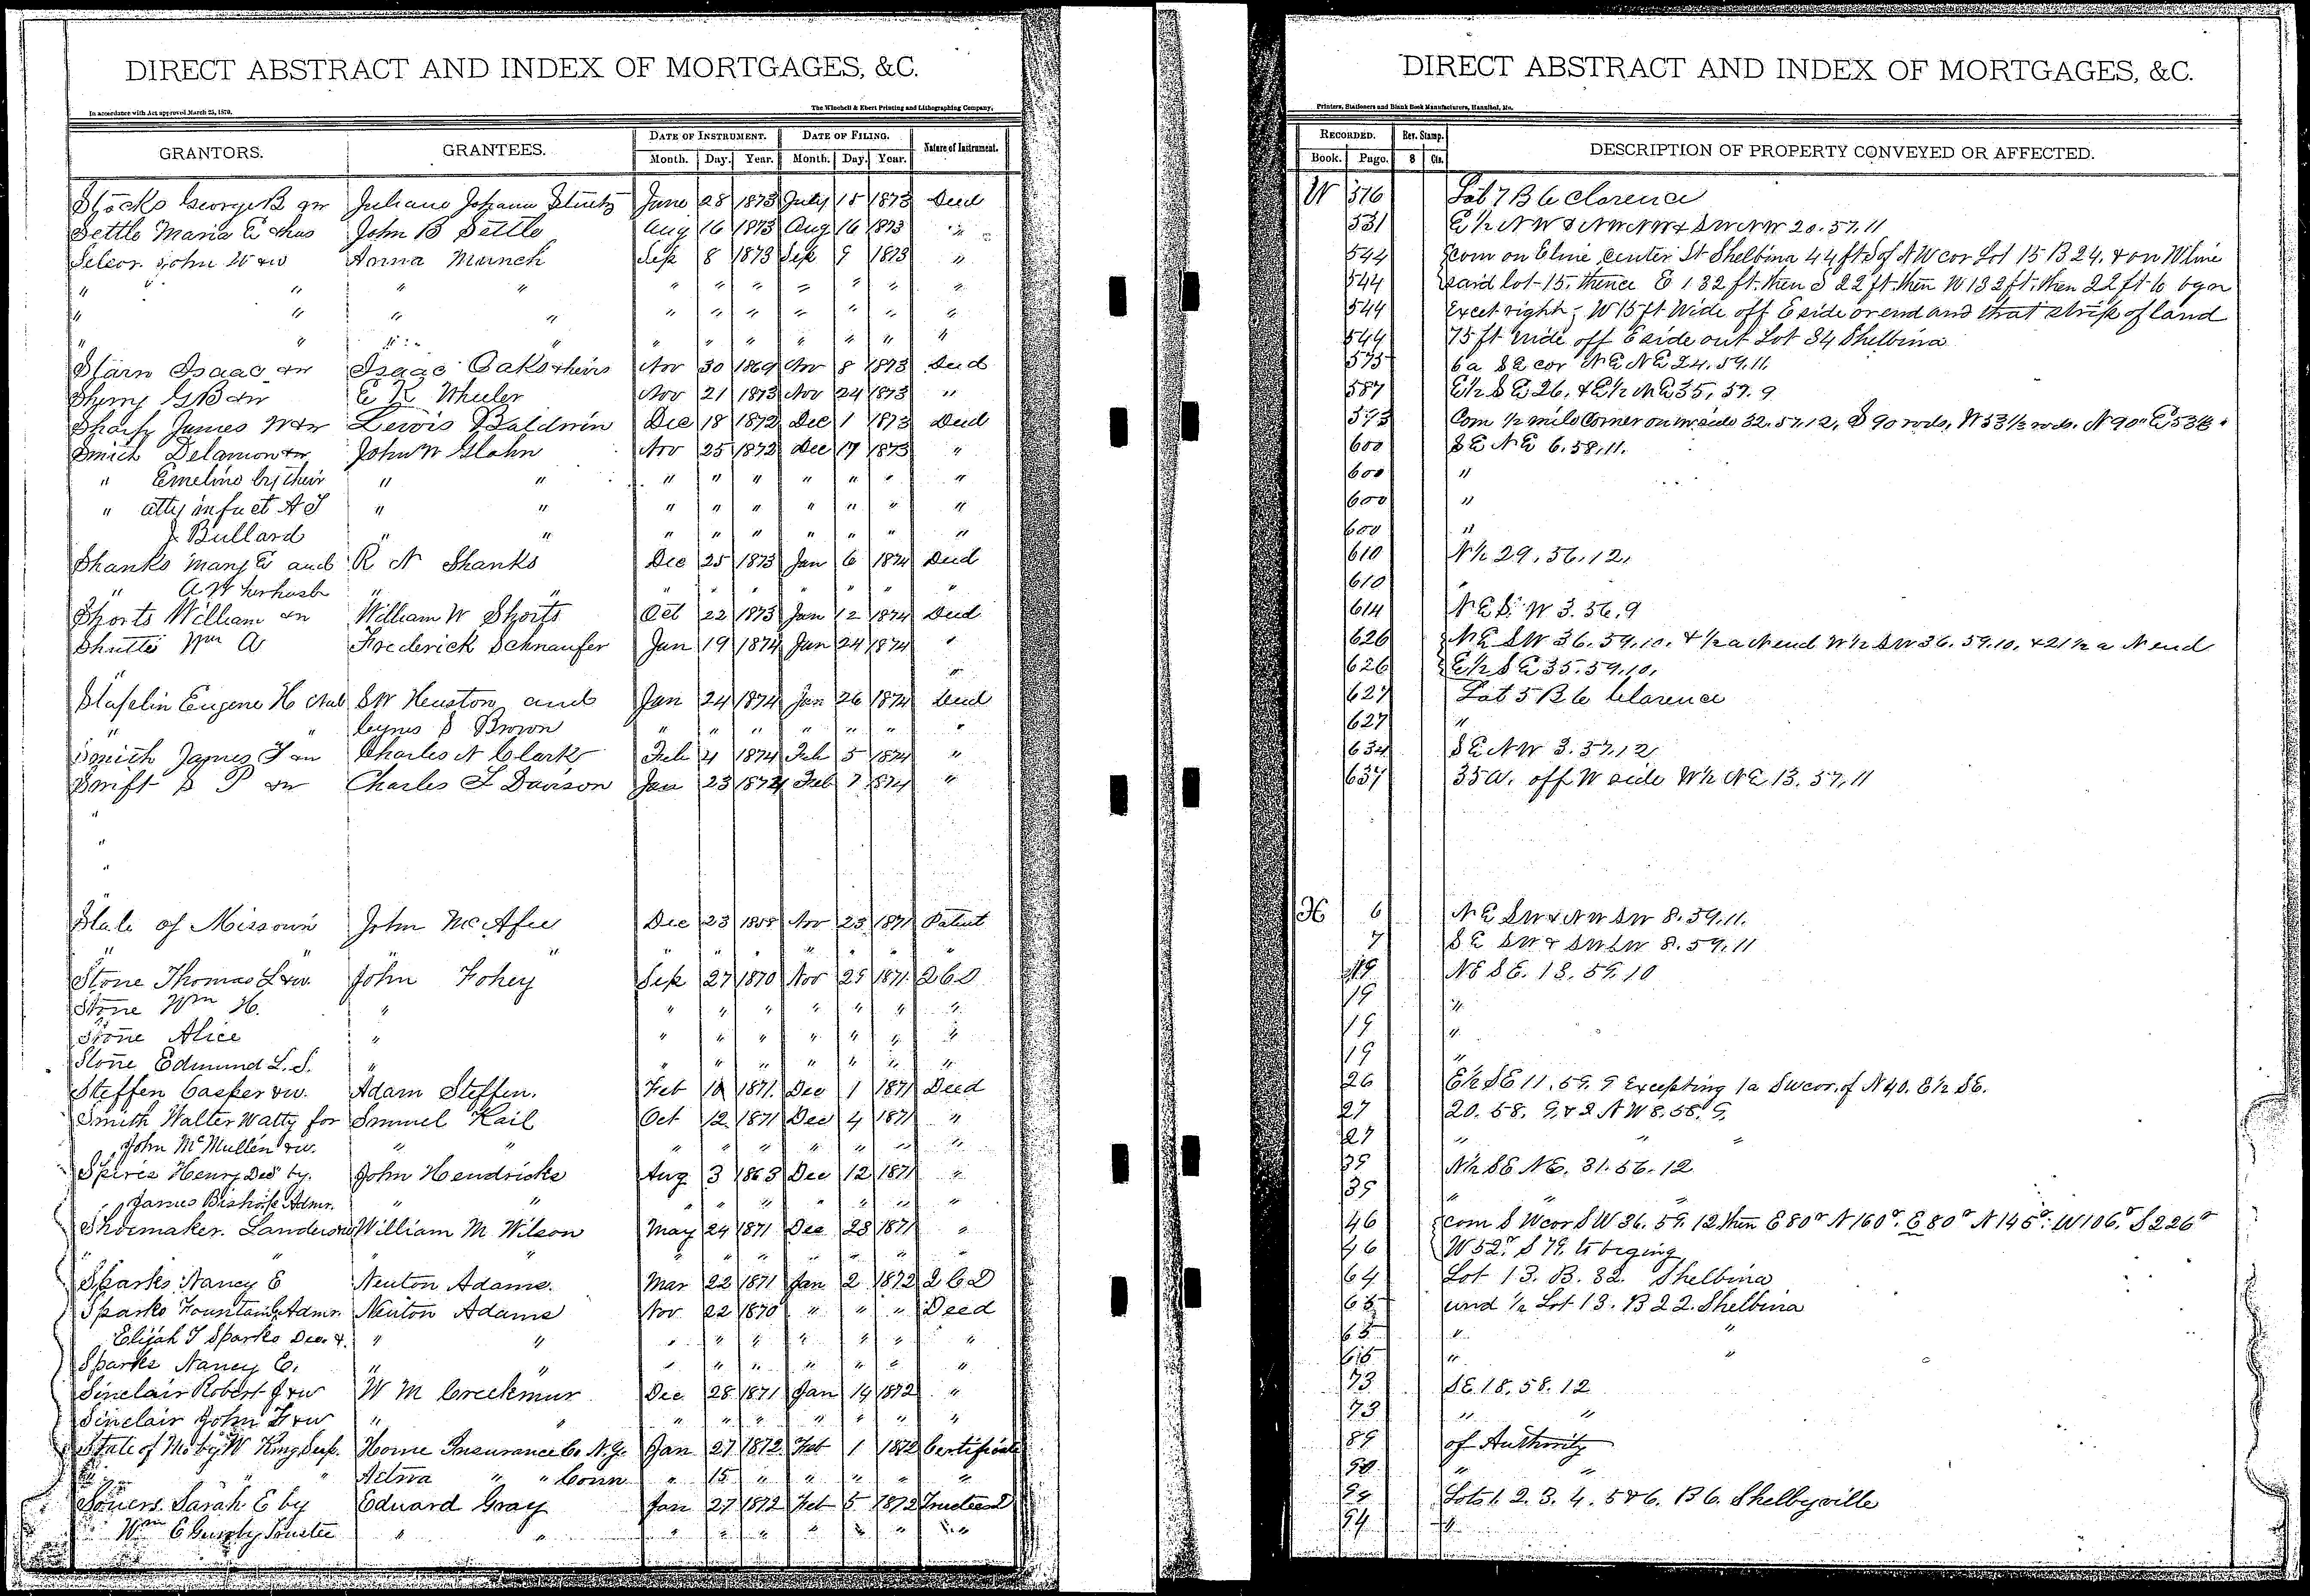 DIRECT ABSTRACT AND INDEX OF MORTGAGES, &C.
In accordance with Act approved March 25, 1870. The Winchell & Ebert Printing and Lithographing Company,
GRANTORS. GRANTEES. DATE OF INSTRUMENT. DATE OF FILING. Nature of Instrument.
Month. Day. Year. Month. Day. Year.
Stocks George B & w Juliane Johann June 28 1873 July 18 1873 Deed
Settle Maria E & hus John B Settle Aug 16 1873 Aug 16 1873 "
John W & w Anna Munch Sep 8 1873 Sep 9 1873 "
" " " " " " " " " " "
" " " " " " " " " " "
" " " " " " " " " "
Starn Isaac & w Isaac Oaks & heirs Nov 30 1869 Nov 8 1873 Deed
Sherry G B & w E K Wheeler Nov 21 1873 Nov 24 1873 "
Sharp James M & w Lewis Baldwin Dec 18 1872 Dec 1 1873 Deed
Smith Delamon & w John W Glahn Nov 25 1872 Dec 17 1873 "
" Emeline by their " " " " " " " " "
" atty in fact A S " " " " " " " " "
J. Bullard " " " " " " " " "
Shanks Mary E and R N Shanks Dec 25 1873 Jan 6 1874 Deed
" A W her husb " " " " " " " " "
Shorts William & w William W Shorts Oct 22 1873 Jan 12 1874 Deed
Shutts Wm A Frederick Schnaufer Jan 19 1874 Jan 24 1874 "
" "
Staplin Eugene H & al S W Heuston and Jan 24 1874 Jan 26 1874 Deed
" " Cyrus S Brown " " " " " " "
Smith James F & w Charles N Clark Feb 4 1874 Feb 5 1874 "
Swift S P & w Charles L Davison Jan 23 1874 Feb 7 1874 "
"
"
"
State of Missouri John McAfee Dec 23 1858 Nov 23 1871 Patent
" " " " " " " " " "
Stone Thomas L & w. John Fohey Sep 27 1870 Nov 29 1871 Q C D
Stone Wm H. " " " " " " " "
Stone Alice " " " " " " " "
Stone Edmund L. S. " " " " " " " "
Steffen Casper & w. Adam Steffen. Feb 10 1871. Dec 1 1871 Deed
Smith Walter Watty for Samuel Hail Oct 12 1871 Dec 4 1871 "
John McMullen & w. " " " " " " " " "
Spires Henry Decd by. John Hendricks Aug 3 1863 Dec 12 1871 "
James Bishop Admr. " " " " " " " " "
Shoemaker. Landerson William M. Wilson May 24 1871 Dec 28 1871 "
" " " " " " " " "
Sparks Nancy E Newton Adams. Mar 22 1871 Jan 2 1872 Q C D
Sparks Fountain Admr. Newton Adams Nov 22 1870 " " " Deed
Elijah T Sparks Dec. & " " " " " " " " "
Sparks Nancy E. " " " " " " " " "
Sinclair Robert J & w W M Creekmur Dec 28 1871 Jan 14 1872 "
Sinclair John F & w " " " " " " " " "
State of Mo by W King Sup. Home Insurance Co N.Y. Jan 27 1872 Feb 1 1872 Certificate
" " Aetna " " Conn " 15 " " " " "
Souers. Sarah. E by Edward Gray Jan 27 1872 Feb 5 1872 Trustees D
Wm E Trustee " " " " " " " " " "
DIRECT ABSTRACT AND INDEX OF MORTGAGES, &C.
Printers, Stationers and Blank Book Manufacturers, Hannibal, Mo.
RECORDED. Rev. Stamp. DESCRIPTION OF PROPERTY CONVEYED OR AFFECTED.
Book. Page. $ Cts.
W 516 Lot 7 B 6 Clarence
531 E ½ N W & N W N W & S W N W 20. 57. 11
544 Com on E line Center St Shelbina 44 ft S of N W cor Lot 15 B 24, & on W line
544 said lot 15, thence E 132 ft. then S 22 ft. then W 132 ft. then 22 ft to begn
544 Excet right, W 15 ft Wide off E side or end and that strip of land
544 75 ft wide off E side out Lot 34 Shelbina
575 6 a S E cor N E N E 24. 59. 11.
587 E ½ S E 26. & E ½ N E 35, 57. 9
593 Com ½ mile Corner on W side 32. 57. 12, S 90 rods, W 53 ½ rods. N 90 " E 53 ½ "
600 S E N E 6. 58. 11.
600 "
600 "
600 "
610 N ½ 29. 56. 12.
610 "
614 N E S W 3. 56. 9
626 N E S W 36. 59. 10. & ½ a N end W ½ S W 36. 59. 10. & 21 ½ a N end
626 E ½ S E 35. 59. 10.
627 Lot 5 B 6 Clarence
627 "
634 S E N W 3. 57. 12
637 35 a. off W side W ½ N E 13. 57. 11
H 6 N E S W & N W S W 8. 59. 11.
7 S E S W & S W S W 8. 59. 11
19 N E S E. 13. 59. 10
19 "
19 "
19 "
26 E ½ S E 11. 59. 9 Excepting 1 a S w cor. of N 40. E ½ S E.
27 20. 58. 9. & 2 N W 8. 58. 9.
27 " " "
39 N ½ S E N E. 31. 56. 12
39 " " "
46 com S W cor S W 36. 59. 12 then E 80 r N 160 r. E 80 r N 146 r. W 106. r S 226 r
46 W 52. r S 79. to beging
64 Lot 13. B. 32. Shelbina
65 und ½ Lot 13. B 22. Shelbina
65 " "
65 " "
73 S E. 18. 58. 12
73 " "
89 of Authority
90 " "
94 Lots 1. 2. 3. 4. 5 & 6. B 6. Shelbyville
94 "